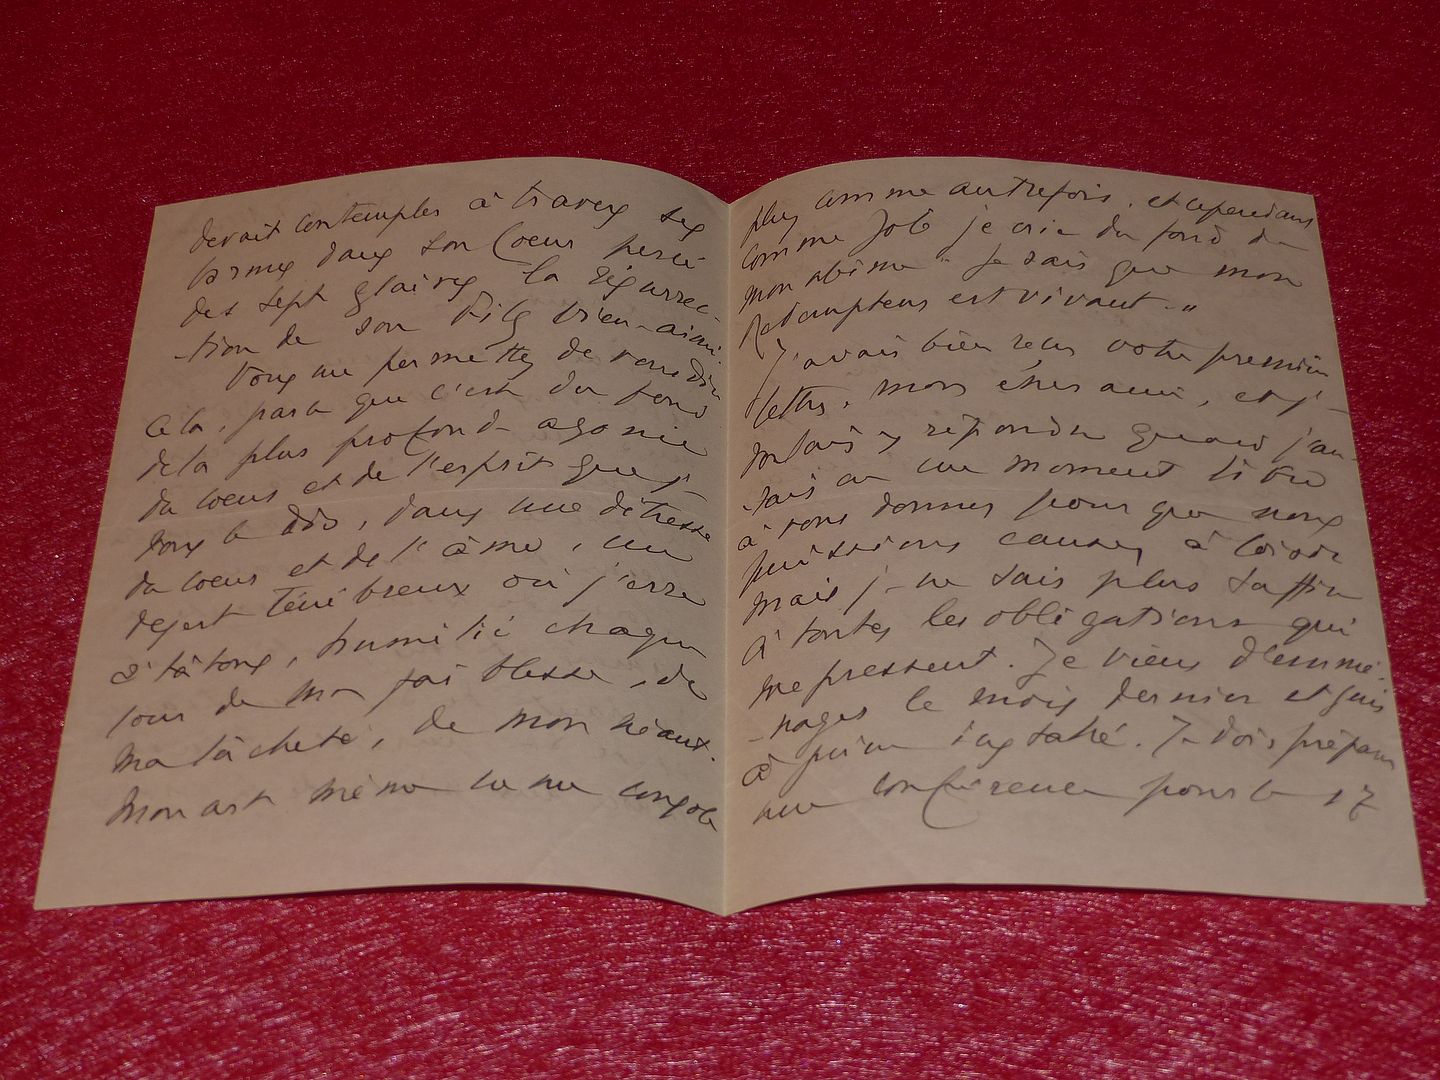 devait contempler à travers ses
larmes dans son Coeur percé
des sept glaives la résurrec-
-tion de son Fils bien-aimé.
Vous me permettez de vous dire
cela, parce que c'est du fond
de la plus profonde agonie
du coeur et de l'esprit que je
vous le dis, dans une détresse
du coeur et de l'âme, un
désert ténébreux où j'erre
à tâtons, humilié chaque
jour de ma foi blessée, de
ma lâcheté, de mon néant.
Mon art même ne me console
plus comme autrefois, et cependant
comme Job je crie du fond de
mon abîme "Je sais que mon
Rédempteur est vivant."
J'avais bien reçu votre première
lettre, mon cher ami, et j'-
voulais y répondre quand j'au-
-rais eu un moment libre
à vous donner pour que nous
puissions causer à loisir
mais je ne sais plus suffire
à toutes les obligations qui
me pressent. Je viens d'emmé-
-nager le mois dernier et suis
à peine installé. Je dois préparer
une conférence pour le 17